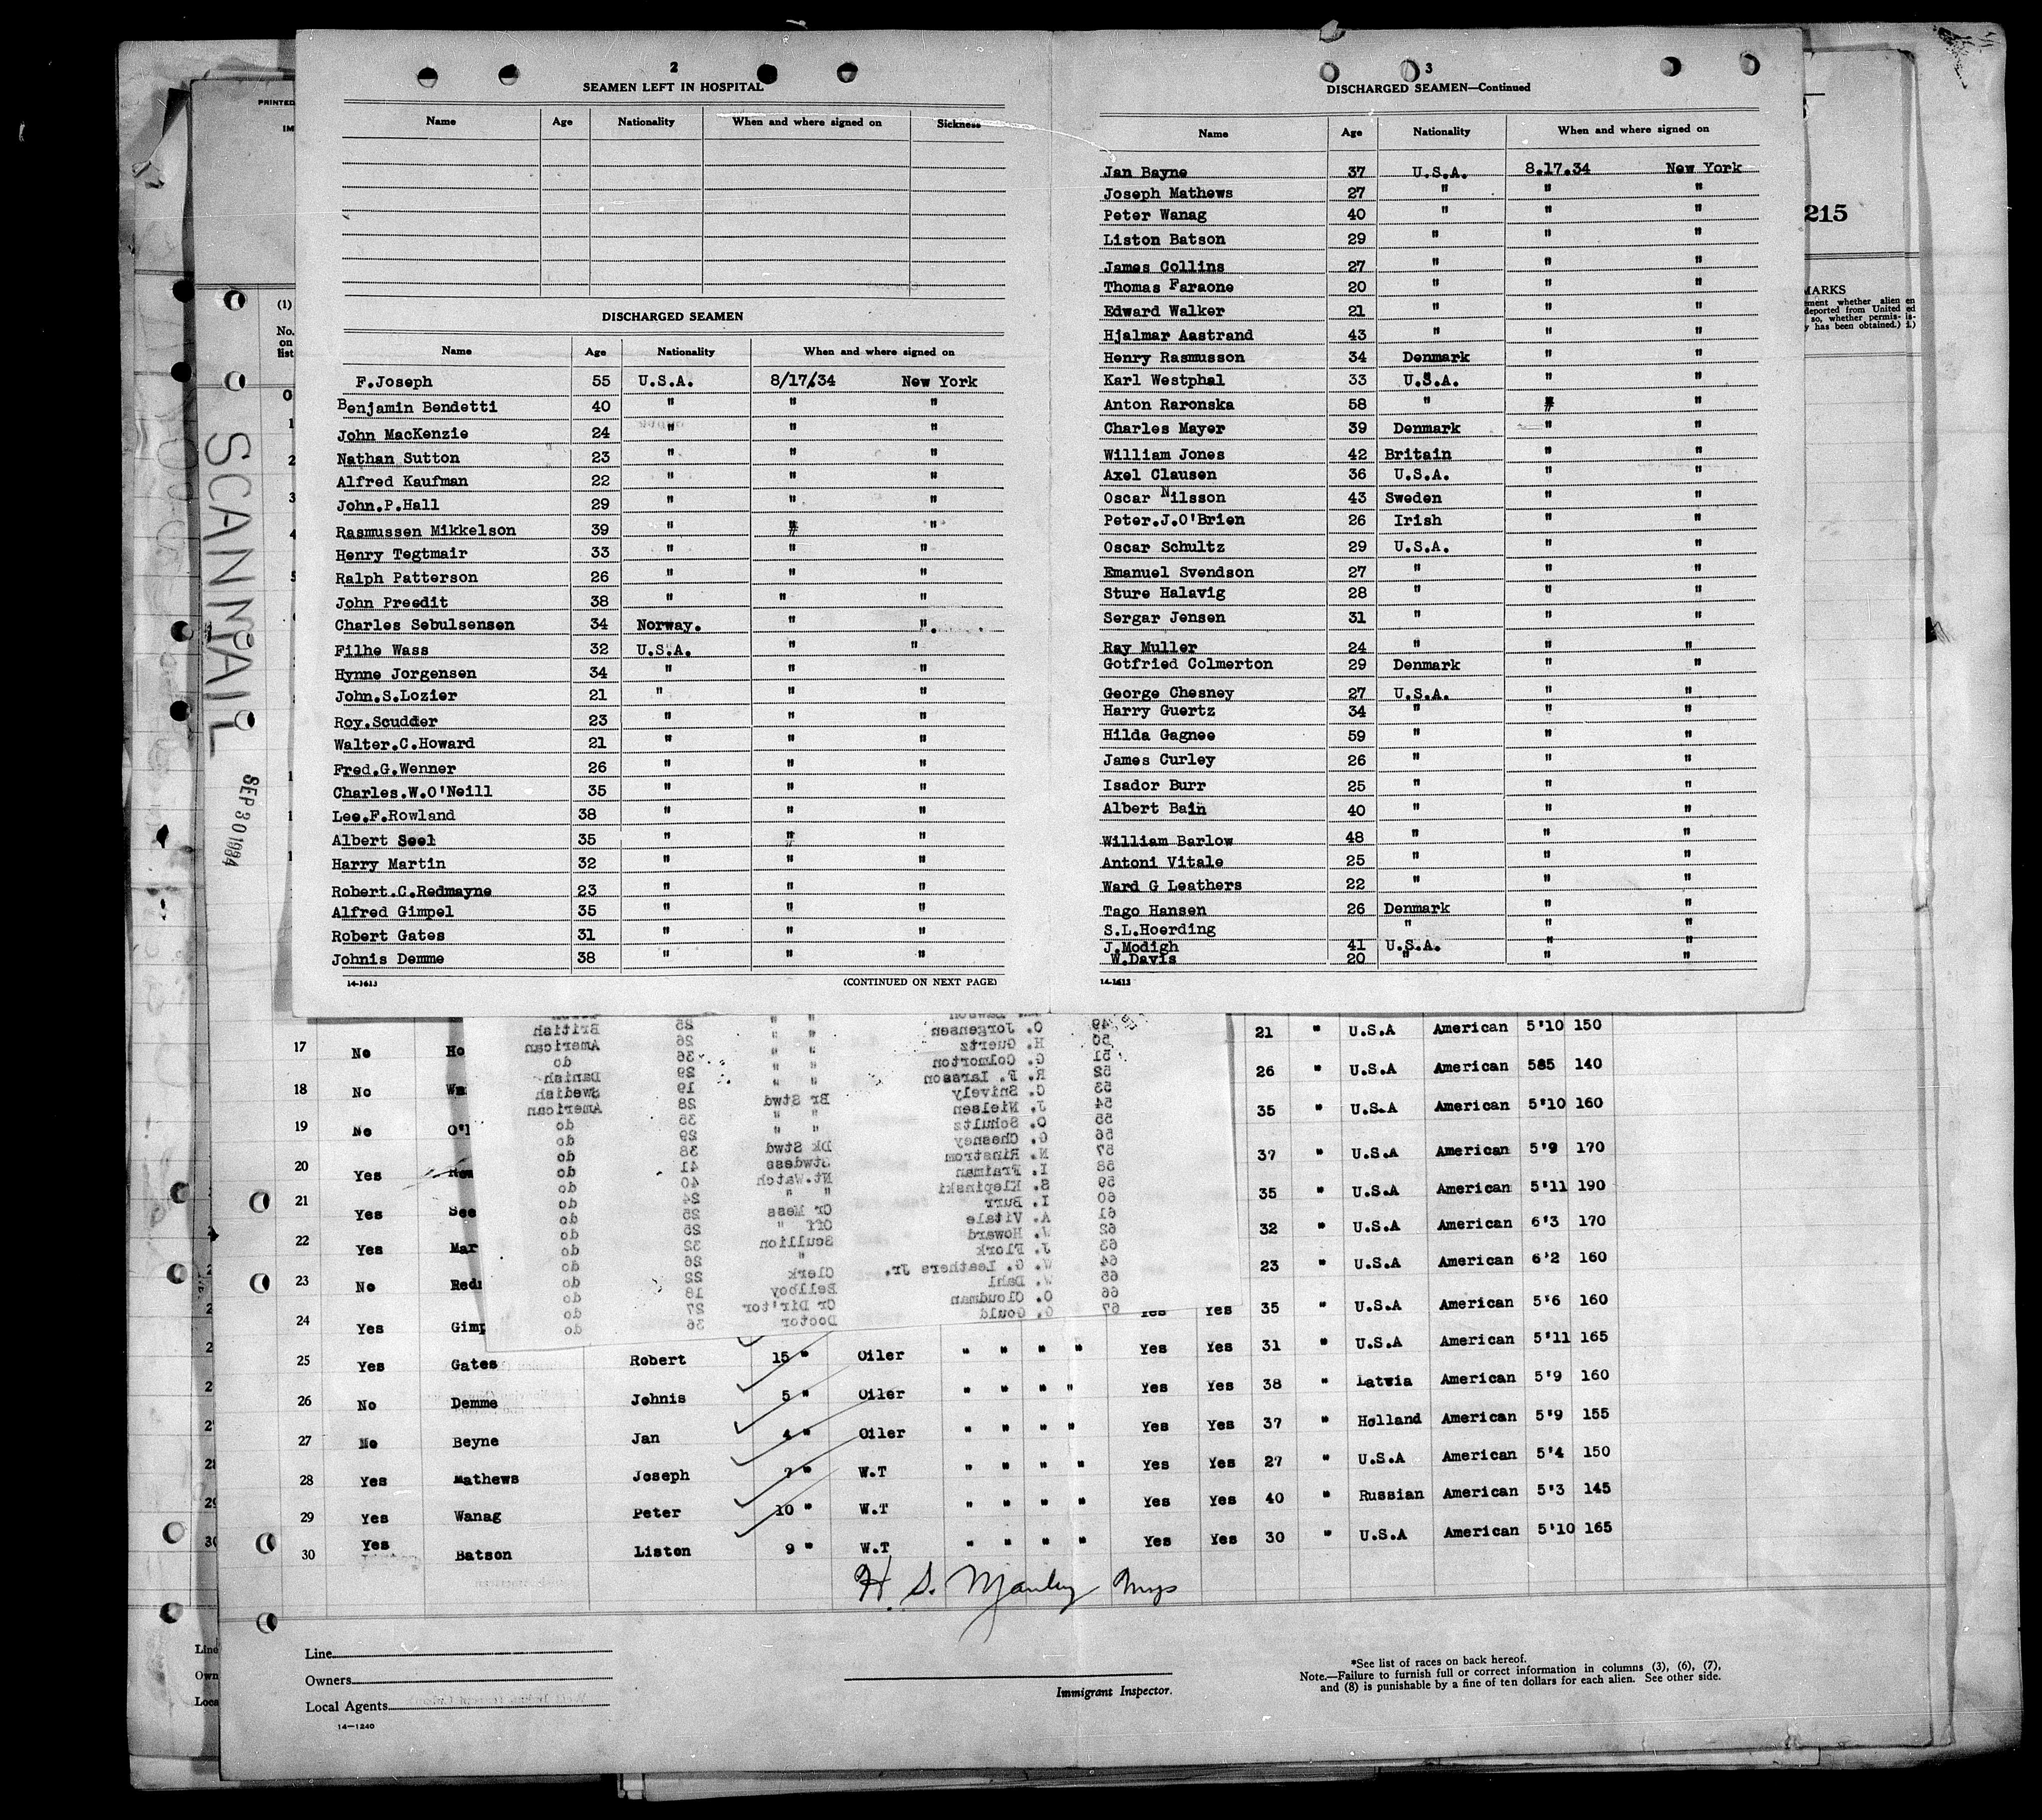 2
SEAMEN LEFT IN HOSPITAL
Name Age Nationality When and where signed on Sickness
DISCHARGED SEAMEN
Name Age Nationality When and where signed on
F.Joseph 55 U.S.A. 8/17/34 New York
Benjamin Bendetti 40 " " "
John MacKenzie 24 " " "
Nathan Sutton 23 " " "
Alfred Kaufman 22 " " "
John.P.Hall 29 " " "
Rasmussen Mikkelson 39 " " "
Henry Tegtmair 33 " " "
Ralph Patterson 26 " " "
John Preedit 38 " " "
Charles Sebulsensen 34 Norway. " "
Filhe Wass 32 U.S.A. " "
Hynne Jorgensen 34 " " "
John.S.Lozier 21 " " "
Roy.Scudder 23 " " "
Walter.C.Howard 21 " " "
Fred.G.Wenner 26 " " "
Charles.W.O'Neill 35 " " "
Lee.F.Rowland 38 " " "
Albert Seel 35 " " "
Harry Martin 32 " " "
Robert.C.Redmayne 23 " " "
Alfred Gimpel 35 " " "
Robert Gates 31 " " "
Johnis Demme 38 " " "
14-1613 (CONTINUED ON NEXT PAGE)
3
DISCHARGED SEAMEN—Continued
Name Age Nationality When and where signed on
Jan Bayne 37 U.S.A. 8.17.34 New York
Joseph Mathews 27 " " "
Peter Wanag 40 " " "
Liston Batson 29 " " "
James Collins 27 " " "
Thomas Faraone 20 " " "
Edward Walker 21 " " "
Hjalmar Aastrand 43 " " "
Henry Rasmusson 34 Denmark " "
Karl Westphal 33 U.S.A. " "
Anton Raronska 58 " " "
Charles Mayer 39 Denmark " "
William Jones 42 Britain " "
Axel Clausen 36 U.S.A. " "
Oscar Nilsson 43 Sweden " "
Peter.J.O'Brien 26 Irish " "
Oscar Schultz 29 U.S.A. " "
Emanuel Svendson 27 " " "
Sture Halavig 28 " " "
Sergar Jensen 31 " " "
Ray Muller 24 " " "
Gotfried Colmerton 29 Denmark " "
George Chesney 27 U.S.A. " "
Harry Guertz 34 " " "
Hilda Gagnee 59 " " "
James Curley 26 " " "
Isador Burr 25 " " "
Albert Bain 40 " " "
William Barlow 48 " " "
Antoni Vitale 25 " " "
Ward G Leathers 22 " " "
Tago Hansen 26 Denmark " "
S.L.Hoerding " " "
J.Modigh 41 U.S.A. " "
W.Davis 20 " " "
14-1613
215
PRINTED
(1)
No.
on
list
SCANMAIL
SEP 30 1934
MARKS
17 No Ho 21 " U.S.A American 5'10 150
18 No 26 " U.S.A American 585 140
19 No O' 35 " U.S.A American 5'10 160
20 Yes 37 " U.S.A American 5'9 170
21 Yes See 35 " U.S.A American 5'11 190
22 Yes Mar 32 " U.S.A American 6'3 170
23 No Red 23 " U.S.A American 6'2 160
24 Yes Gimp Yes Yes 35 " U.S.A American 5'6 160
25 Yes Gates Robert 15 " Oiler " " " " Yes Yes 31 " U.S.A American 5'11 165
26 No Demme Johnis 5 " Oiler " " " " Yes Yes 38 " Latwia American 5'9 160
27 No Beyne Jan 4 " Oiler " " " " Yes Yes 37 " Holland American 5'9 155
28 Yes Mathews Joseph 7 " W.T " " " " Yes Yes 27 " U.S.A American 5'4 150
29 Yes Wanag Peter 10 " W.T " " " " Yes Yes 40 " Russian American 5'3 145
30 Yes Batson Liston 9 " W.T " " " " Yes Yes 30 " U.S.A American 5'10 165
49 O. Jorgensen " " 25 British
50 H. Guertz " " 26 American
51 G. Colmorton " " 36 do
52 R. F. Larsson " " 29 Danish
53 C. Snively " " 19 Swedish
54 J. Nielsen Br Stwd 28 American
55 O. Schultz " " 35 do
56 G. Chesney " " 29 do
57 N. Rinstrom Dk Stwd 38 do
58 I. Fraiman Stwdess 41 do
59 S. Klepinski Nt.Watch 40 do
60 I. Burr " " 24 do
61 A. Vitale Cr Mess 25 do
62 W. Howard Off " 25 do
63 J. Flork Scullion 32 do
64 W. G. Leathers Jr. " 26 do
65 W. Dahl Clerk 22 do
66 O. Cloudman Bellboy 18 do
67 G. Gould Cr Dir'tor 27 do
Doctor 36 do
H. S. Manley
Line
Owners
Local Agents
14—1240
Immigrant Inspector.
*See list of races on back hereof.
Note.—Failure to furnish full or correct information in columns (3), (6), (7),
and (8) is punishable by a fine of ten dollars for each alien. See other side.